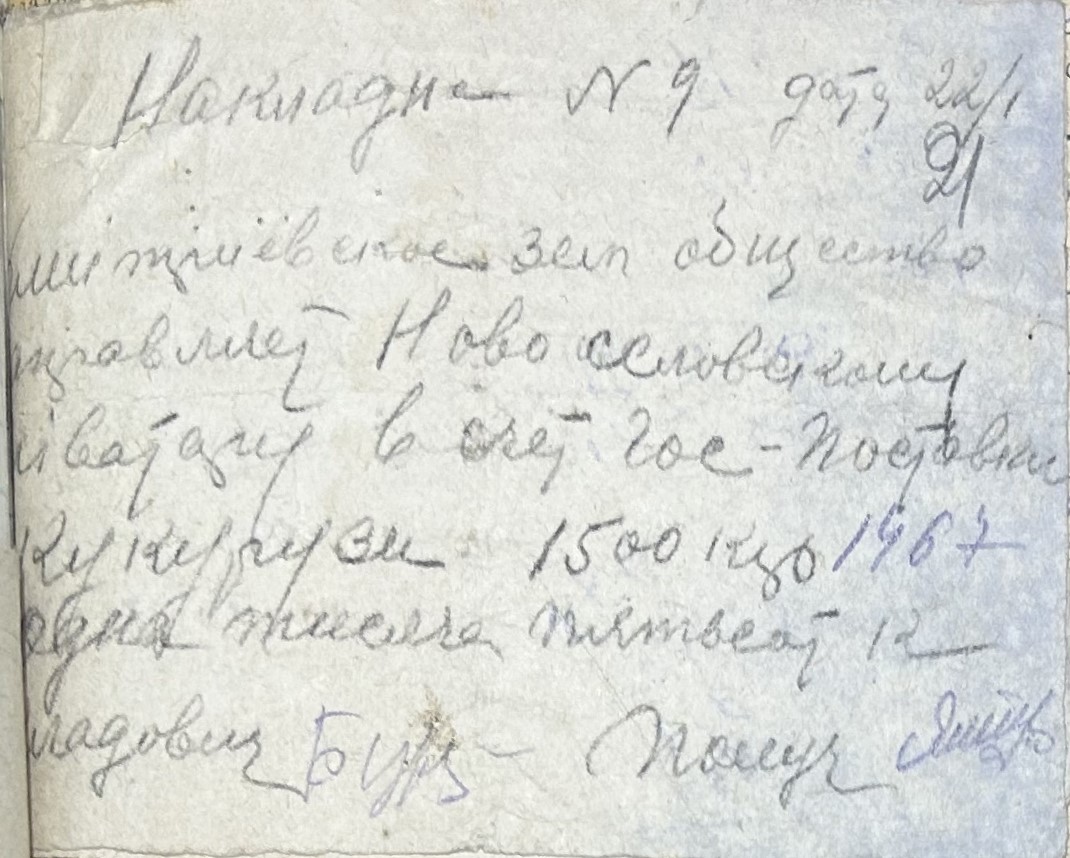 Накладна N 9 дата 22/I
21
митриевское зем общество
правляет Новоселовскому
еватору в счет Гос-поставки
Кукурузи 1500 кгр 1467
одна тисяча пятьсот к
ладовщ Получ